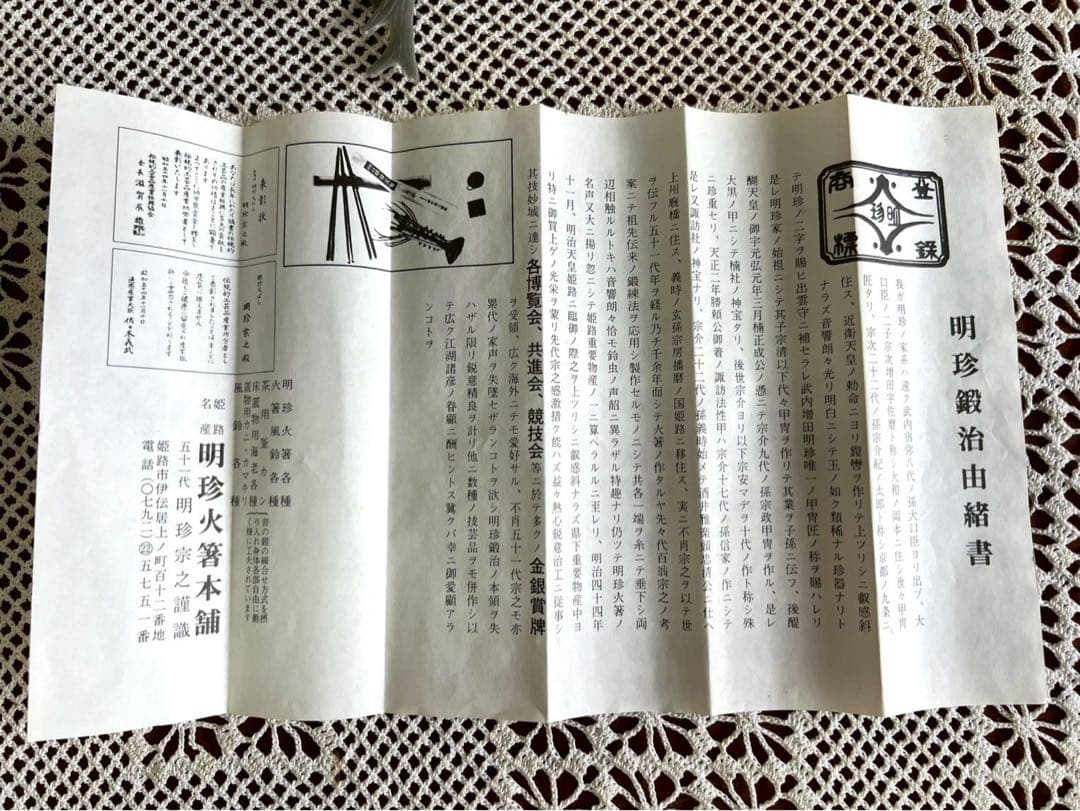 明珍鍛治由緒書
登録
明珍
商標
我ガ明珍ノ家系ハ遠ク武内宿弥八代ノ孫大口臣ヨリ出ヅ、大
口臣ノ二子宗次増田宇佐磨ト称シ大和ノ岡本ニ住シ世々甲冑
匠タリ、宗次二十二代ノ孫宗介紀ノ太郎ト称シ京都ノ九条ニ
住ス、近衛天皇ノ勅命ニヨリ鎧轡ヲ作リテ上ツリシニ叡感斜
ナラズ音響朗々光リ明白ニシテ玉ノ如ク類稀ナル珍器ナリト
テ明珍ノ二字ヲ賜ヒ出雲守ニ補セラレ武内増田明珍唯一ノ甲冑匠ノ称ヲ賜ハレリ
是レ明珍家ノ始祖ニシテ其子宗清以下代々甲冑ヲ作リテ其業ヲ子孫ニ伝フ、後醍
醐天皇ノ御宇元弘元年三月楠正成公ノ憑ニテ宗介九代ノ孫宗政甲冑ヲ作ル、是レ
大黒ノ甲ニシテ楠社ノ神宝タリ、後世宗介ヨリ以下宗安マデヲ十代ノ作ト称シ殊
ニ珍重セリ、天正二年勝頼公御着ノ諏訪法性甲ハ宗介十七代ノ孫信家ノ作ニシテ
是レ又諏訪社ノ神宝ナリ、宗介二十二代ノ孫義時始メテ酒井雅楽頭忠清公ニ仕ヘ
上州厩橋ニ住ス、義時ノ玄孫宗房播磨ノ国姫路ニ移住ス、実ニ不肖宗之ヲ以テ世
ヲ伝フル五十一代年ヲ経ル乃チ千余年而シテ火箸ノ作タルヤ先々代百翁宗之ノ考
案ニテ祖先伝来ノ鍛練法ヲ応用シ製作セルモノニシテ共各一端ヲ糸ニテ垂下シ両
辺相触ルルトキハ音響朗々恰モ鈴虫ノ声韶ニ異ラザル特趣ナリ仍ツテ明珍火箸ノ
名声又大ニ揚リ忽ニシテ姫路重要物産ノ一ニ算ヘラルルニ至レリ、明治四十四年
十一月、明治天皇姫路ニ臨御ノ際之ヲ上ツリシニ叡感斜ナラズ県下重要物産中ヨ
リ特ニ御買上ゲノ光栄ヲ蒙リ先代宗之感激措ク能ハズ益々熱心鋭意治工ニ従事シ
其技妙域ニ達シ各博覧会、共進会、競技会等ニ於テ多クノ金銀賞牌
ヲ受領、広ク海外ニテモ愛好サル、不肖五十一代宗之モ亦
累代ノ家声ヲ失墜セザランコトヲ欲シ明珍鍛治ノ本領ヲ失
ハザル限リ鋭意精良ヲ計リ他ニ数種ノ技芸品ヲモ併作シ以
テ広ク江湖諸彦ノ眷顧ニ酬ヒントス冀クバ幸ニ御愛顧アラ
ンコトヲ
表彰状
明珍宗之殿
昭和五十四年十一月十日
伝統的工芸品産業振興協会
会長
明珍宗之殿
昭和五十四年十一月十日
通商産業大臣
明珍火箸各種
火箸風鈴各種
茶用釜カン
床置物用海老各種
置物用カニ・カマキリ
風鈴各種
昔の鎧の組合せ方式を摂
り入れ身体各部自由に動
く様に工夫されています
姫路名産
明珍火箸本舗
五十一代明珍宗之謹識
姫路市伊伝居上ノ町百十二番地
電話(〇七九二)㉒五七五一番